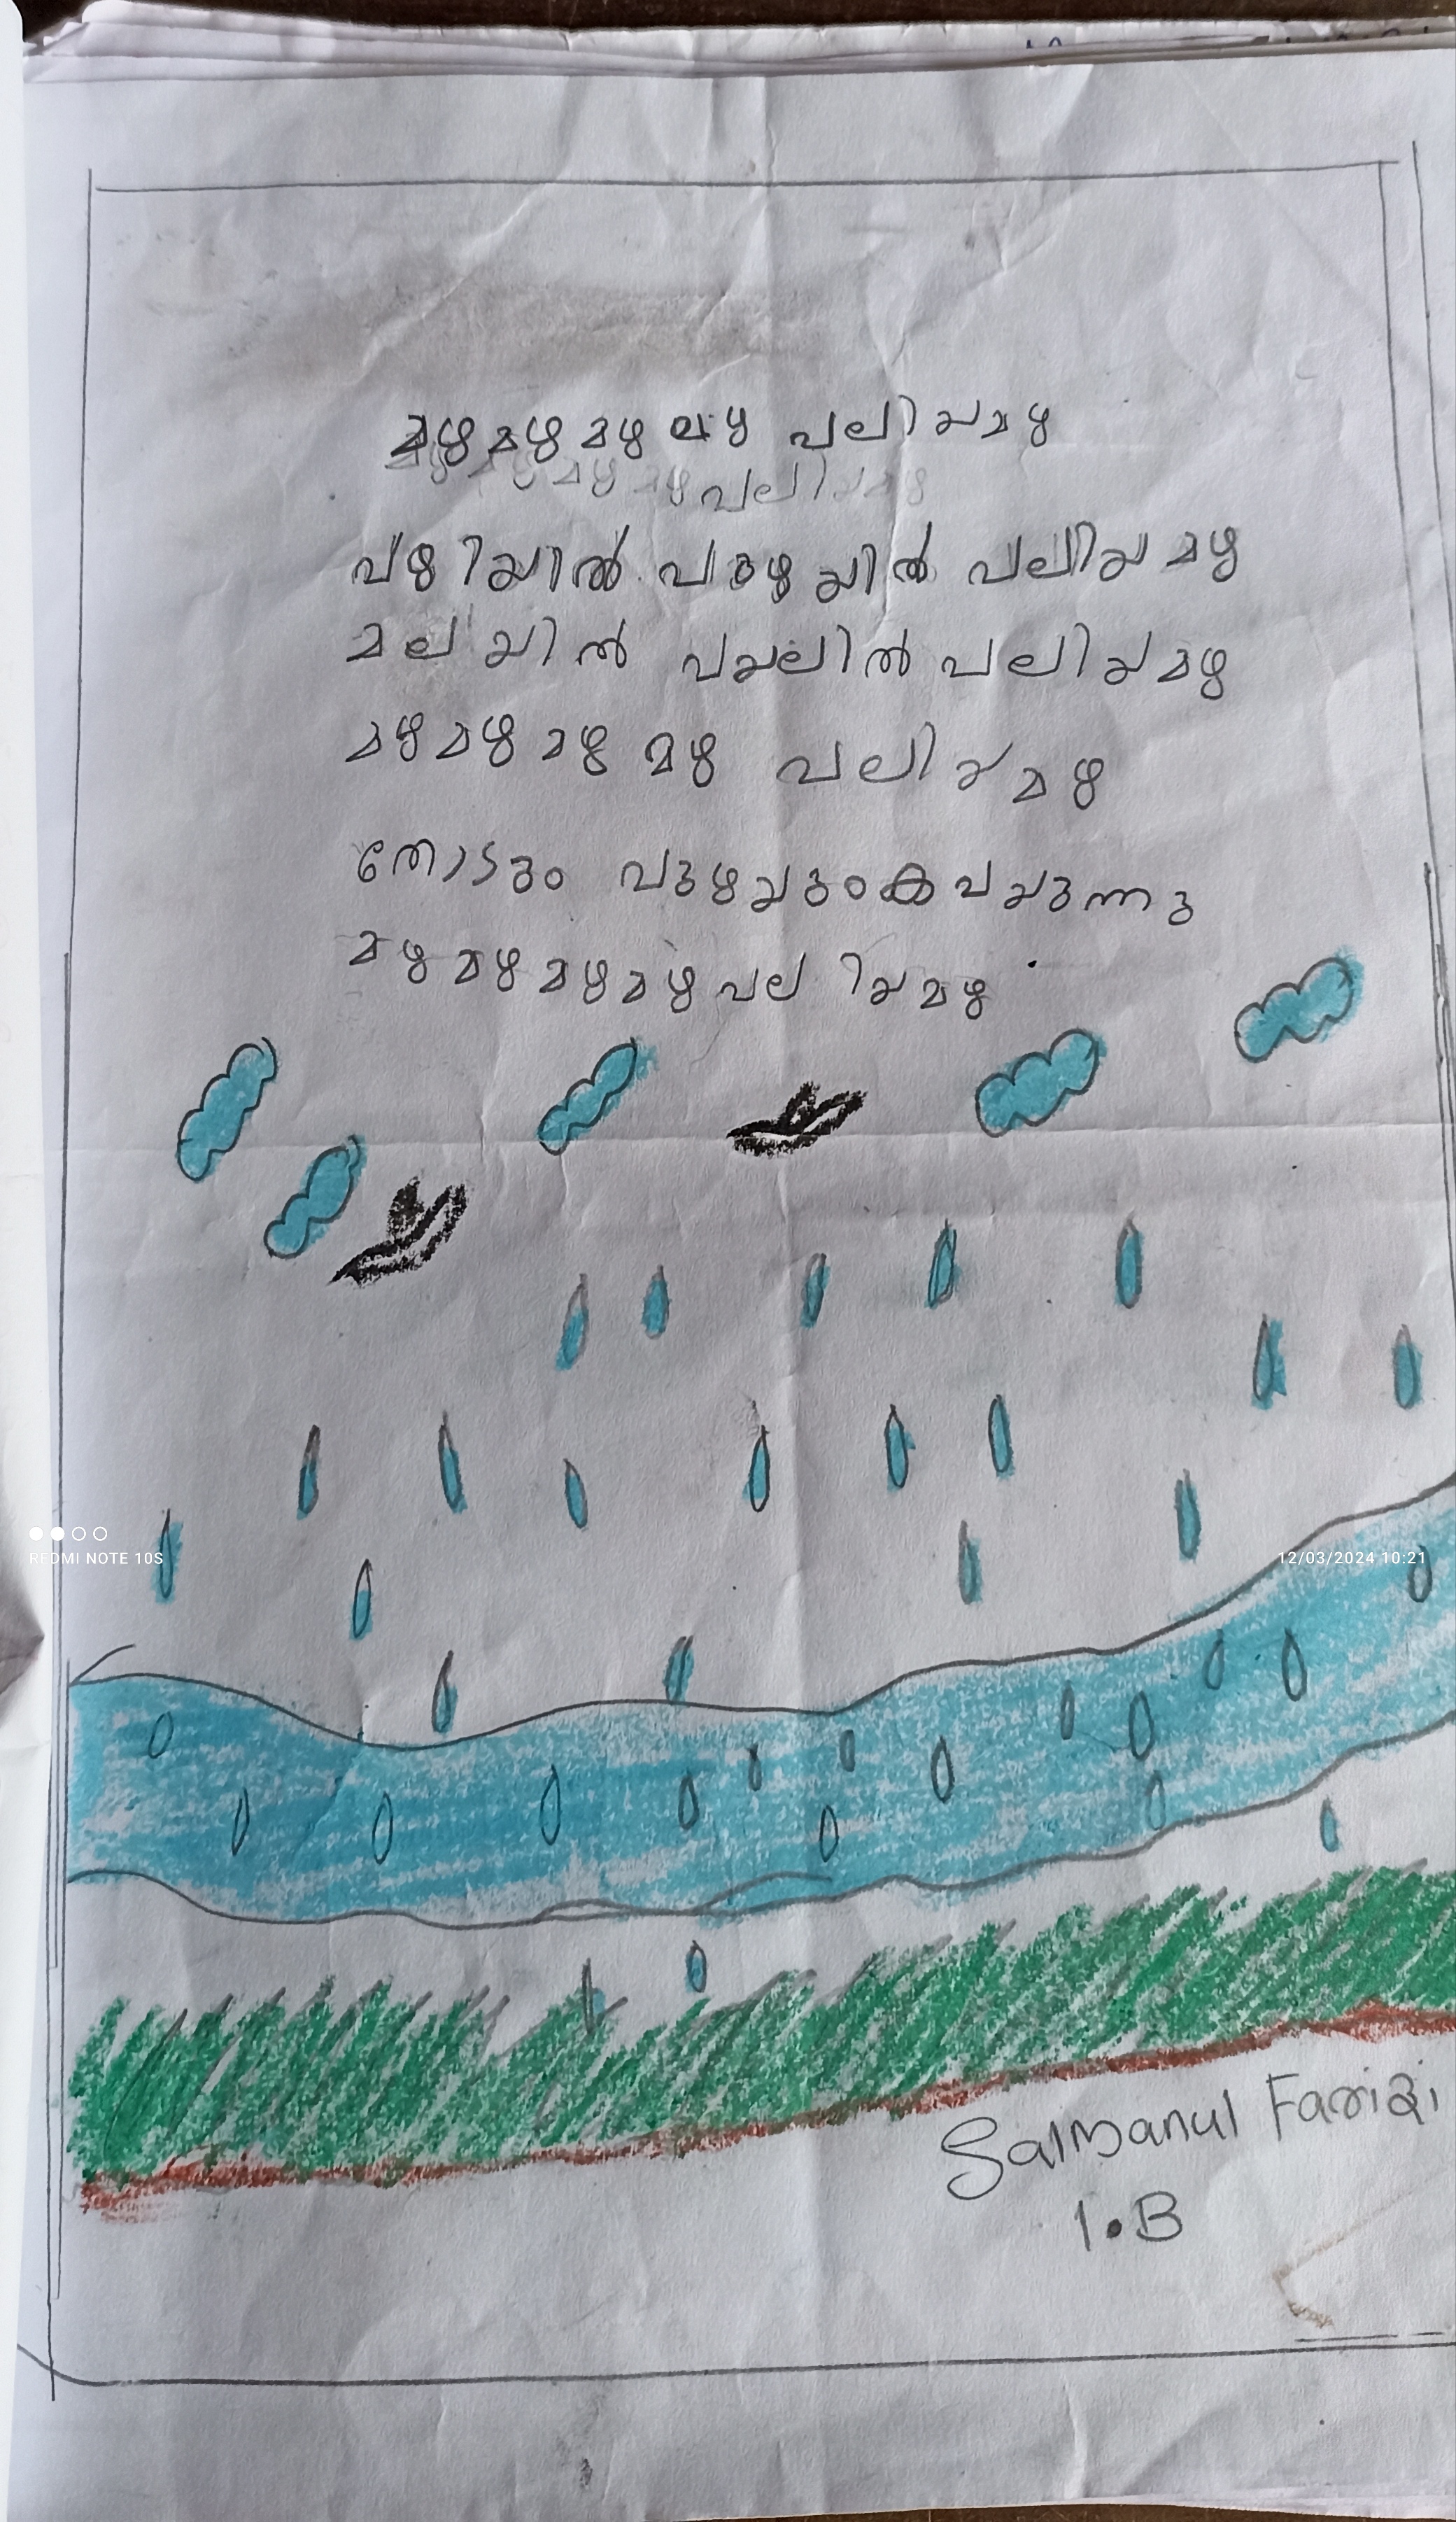 മഴ മഴ മഴ മഴ പലിയ മഴ
മഴ മഴ മഴ മഴ പലിയ മഴ
പഴിയിൽ പുഴയിൽ പലിയ മഴ
മലയിൽ പയലിൽ പലിയ മഴ
മഴ മഴ മഴ മഴ പലിയ മഴ
തോടും പുഴയും കവയുന്നു
മഴ മഴ മഴ മഴ പലിയ മഴ
REDMI NOTE 10S
12/03/2024 10:21
Salmanul Farisi
1.B